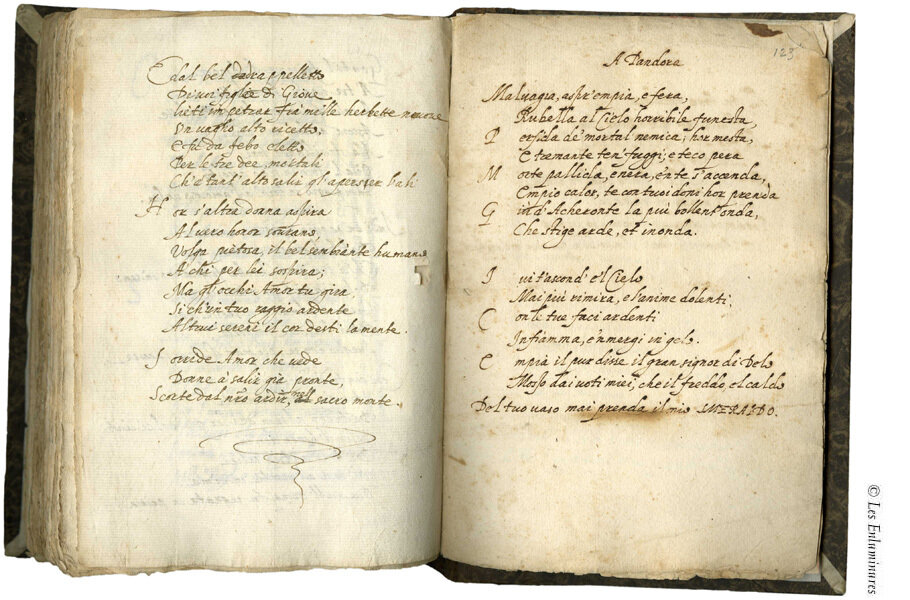 E dal bel petto
Di voi figlie di Giove
lieti impetrar fra mille herbette nuove
Un vagho alto ricetto,
E fu da febo eletto
Per le tre dee mortali
Ch'è tant'alto salir gl'aperser l'ali
Hor s'altra donna aspira
Al vero honor sourano,
Volga pietosa, il bel sembiante humano
A chi per lei sospira;
Ma gl'occhi Amor tu gira,
Si ch'un tuo raggio ardente
Altrui sereni il cor desti la mente.
Sorride Amor che vede
Donne à salir già pronte,
Scorte dal nro ardir, nel sacro monte.
123
A Pandora
Malvagia, aspr'empia, e fera,
Rubella al Cielo horribile funesta,
Perfida de' mortal nemica, hor mesta,
E tremante ten' fuggi; e teco pera
Morte pallida, e nera, e'n te s'accenda,
Empio calor, te con tuoi doni hor prenda
Giù d'Acheronte la più bollent'onda,
Che stige arde, et inonda.
Ivi t'ascond' e'l Cielo
Mai più rimira, e l'anime dolenti
Con le tue faci ardenti
Infiamma, e'mmergi in gelo.
Empia il pur disse il gran signor di Delo
Mosso dai voti miei, che il freddo, el caldo
Del tuo vaso mai prenda il mio SMERALDO.
© Les Enluminures